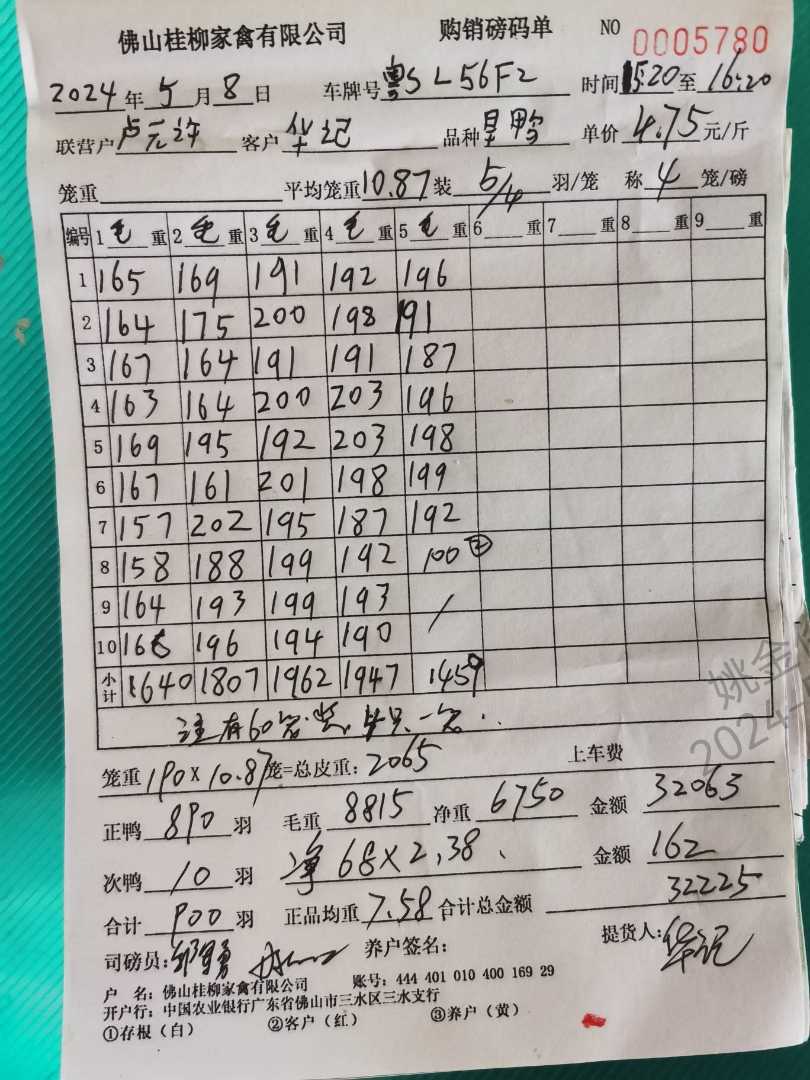 佛山桂柳家禽有限公司 购销磅码单 NO 0005780
2024年5月8日 车牌号粤SL56F2 时间15:20至16:20
联营户卢元许 客户华记 品种 单价4.75元/斤
笼重 平均笼重10.87装5/4羽/笼 称4笼/磅
编号 1毛重 2毛重 3毛重 4毛重 5毛重 6重 7重 8重 9重
1 165 169 191 192 196
2 164 175 200 198 191
3 167 164 191 191 187
4 163 164 200 203 196
5 169 195 192 203 198
6 167 161 201 198 199
7 157 202 195 187 192
8 158 188 199 192 100②
9 164 193 199 193 /
10 166 196 194 190
小计 1640 1807 1962 1947 1459
注有60笼装 只一笼
笼重190×10.87笼=总皮重:2065 上车费
正鸭890羽 毛重8815净重6750 金额32063
次鸭10羽 净68×2.38 金额162
合计900羽 正品均重7.58合计总金额32225
司磅员: 养户签名: 提货人:华记
户 名:佛山桂柳家禽有限公司 账号:444 401 010 400 169 29
开户行:中国农业银行广东省佛山市三水区三水支行
①存根(白) ②客户(红) ③养户(黄)
姚金
2024-